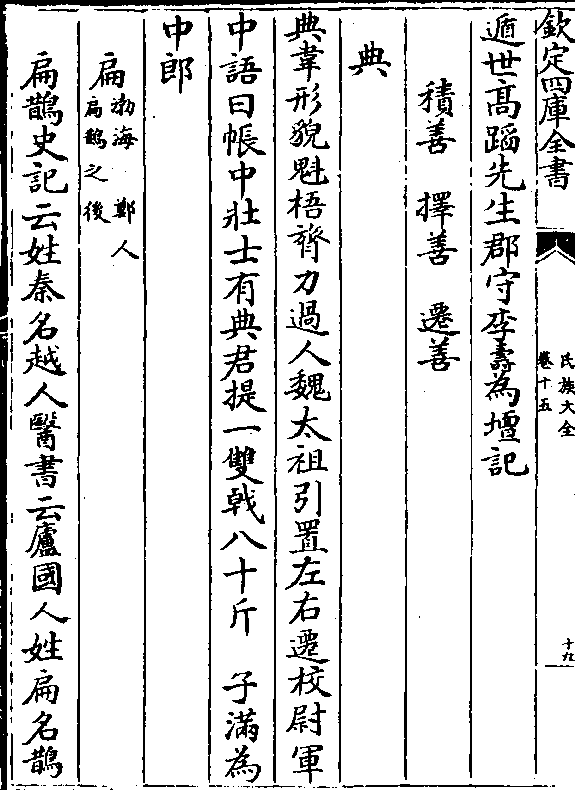 欽定四庫全書
氏族大全
卷十五
十九
遁世高蹈先生郡守李壽為壇記
積善 擇善 遷善
典
典韋形貌魁梧膂力過人魏太祖引置左右遷校尉軍
中語曰帳中壯士有典君提一雙戟八十斤 子滿為
中郎
扁 渤海鄭人
扁鵲之後
扁鵲史記云姓秦名越人醫書云廬國人姓扁名鵲